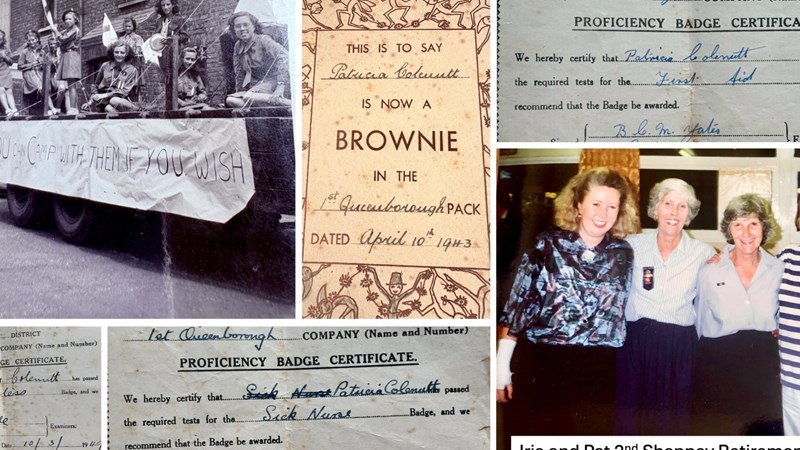 OU CAN CAMP WITH THEM IF YOU WISH
THIS IS TO SAY
Patricia Colenutt
IS NOW A
BROWNIE
IN THE
1st Queenborough PACK
DATED April 10th 1943
PROFICIENCY BADGE CERTIFICA
We hereby certify that Patricia Colenutt
the required tests for the First Aid
recommend that the Badge be awarded.
B. C. M. Yates
DISTRICT
COMPANY (Name and Number)
GE CERTIFICATE.
Colenutt has passed
Badge, and we
Examiners.
Date 10/3/194
1st Queenborough COMPANY (Name and Number)
PROFICIENCY BADGE CERTIFICATE.
We hereby certify that Sick Nurse Patricia Colenutt has passed
the required tests for the Sick Nurse Badge, and we
recommend that the Badge be awarded.
Iris and Pat 2nd Sheppey Retiremen